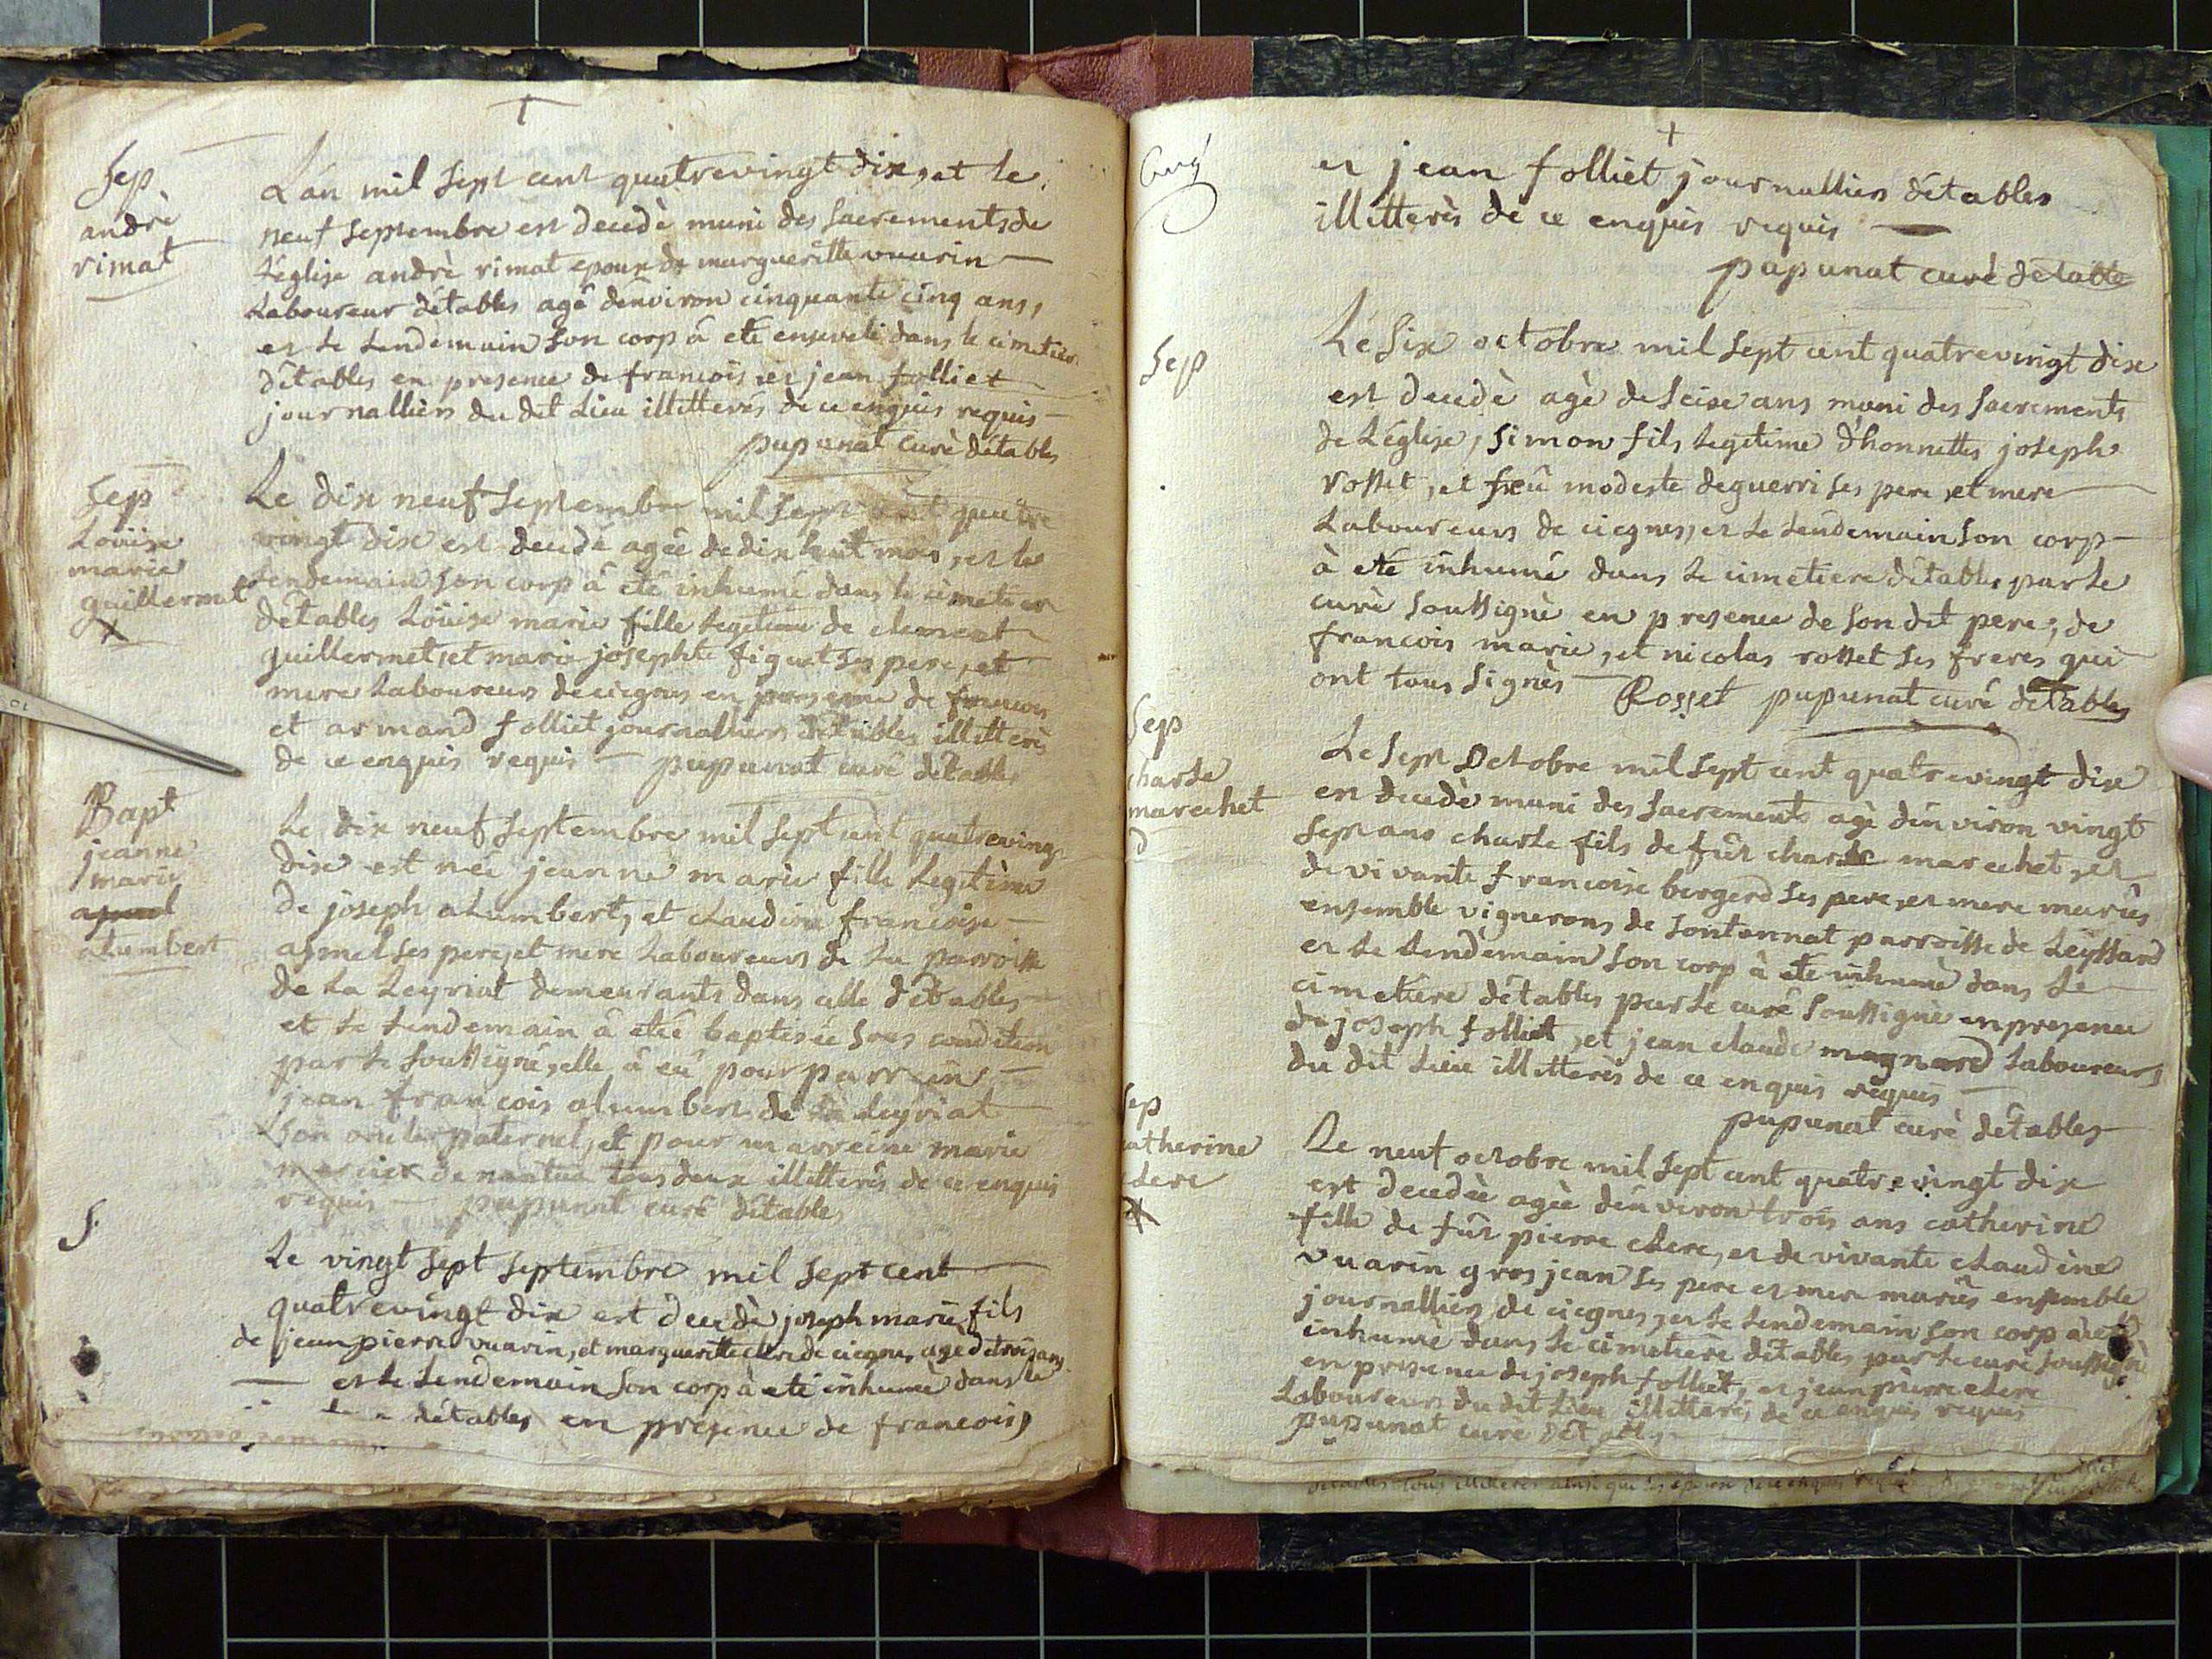 Sep
andrè
rimat
L'an mil sept cent quatrevingt dix, et le
neuf septembre est decedè muni des sacrements de
L'église andrè rimat epoux de margueritte vuarin
Laboureur détables agé dénviron cinquante cinq ans,
et le lendemain son corp â eté enseveli dans le cimetier
détables en presence de francois et jean folliet
journalliers du dit Lieu illitterés de ce enquis requis
pupunat curè détables
Sep
Loüise
marie
guillermet
Le dix neuf septembre mil sept cent quatre
vingt dix est decedé agée de dix huit mois, et le
lendemain son corp â eté inhumé dans le cimetier
détables Loüise marie fille legitime de clement
guillermet, et marie josephte figuet ses pere, et
mere Laboureurs de ciegnes en presence de francois
et armand folliet journalliers détables illitterés
de ce enquis requis pupunat curé détables
Bapt
jeanne
marie
alumbert
Le dix neuf septembre mil sept cent quatreving
dix est née jeanne marie fille Legitime
de joseph alumbert, et claudine francoise
asmel ses pere, et mere Laboureurs de la parroisse
de La Leyriat demeurants dans celle détables
et le lendemain â etée baptisée sous condition
par le soussigné, elle â eû pour parrein
jean francois alumbert de la Leyriat
son oncle paternel, et pour marreine marie
mercier de nantua tous deux illitterés de ce enquis
requis pupunat curé détables
S
Le vingt sept septembre mil sept cent
quatrevingt dix est decedè joseph marie fils
de jean pierre vuarin, et margueritte clere de ciegnes agé de trois ans
et le lendemain son corp à eté inhumé dans le
détables en presence de francois
et jean folliet journalliers détables
illitterès de ce enquis requis
pupunat curè détables
Sep
Le six octobre mil sept cent quatrevingt dix
est decedè agè de seise ans muni des sacrements
de L'église, simon fils Legitime d'honnettes joseph
rosset, et feû modeste deguerri ses pere, et mere
Laboureurs de ciegnes, et le lendemain son corp
à eté inhumé dans le cimetiere détables par le
curè soussigné en presence de son dit pere, de
francois marie, et nicolas rosset ses freres qui
ont tous signès Rosset pupunat curé détables
Sep
charle
marechet
Le sept octobre mil sept cent quatrevingt dix
est decedè muni des sacrements agè dénviron vingt
sept ans charle fils de fût charle marechet, et
de vivante francoise berger ses pere, et mere mariés
ensemble vignerons de sontonnat parroisse de Leyssard
et le lendemain son corp à eté inhumè dans le
cimetiere détables par le curé soussigné en presence
de joseph folliet, et jean claude magnard Laboureurs
du dit Lieu illitterès de ce enquis requis
pupunat curè détables
Sep
catherine
clere
Le neuf octobre mil sept cent quatrevingt dix
est decedèe agèe dénviron trois ans catherine
fille de fût pierre clere, et de vivante claudine
vuarin gros jean ses pere et mere mariés ensemble
journalliers de ciegnes, et le lendemain son corp à eté
inhumé dans le cimetiere détables par le curé soussigné
en presence de joseph folliet, et jean pierre clere
Laboureurs du dit Lieu illitterés de ce enquis requis
pupunat curé détables